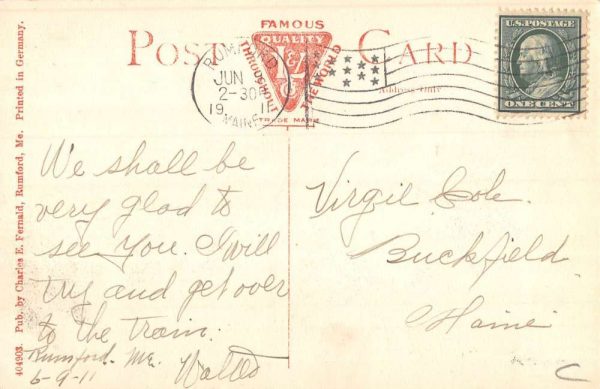 FAMOUS
POST CARD
QUALITY
THROUGHOUT THE WORLD
TRADE MARK
Address Only
RUMFORD
JUN
2-30P
19 11
MAINE
U.S. POSTAGE
ONE CENT
We shall be
very glad to
see you. I will
try and get over
to the train.
Rumford. Me.
6-9-11
Virgil Cole.
Buckfield.
Maine
C
404903. Pub. by Charles E. Fernald, Rumford, Me. Printed in Germany.